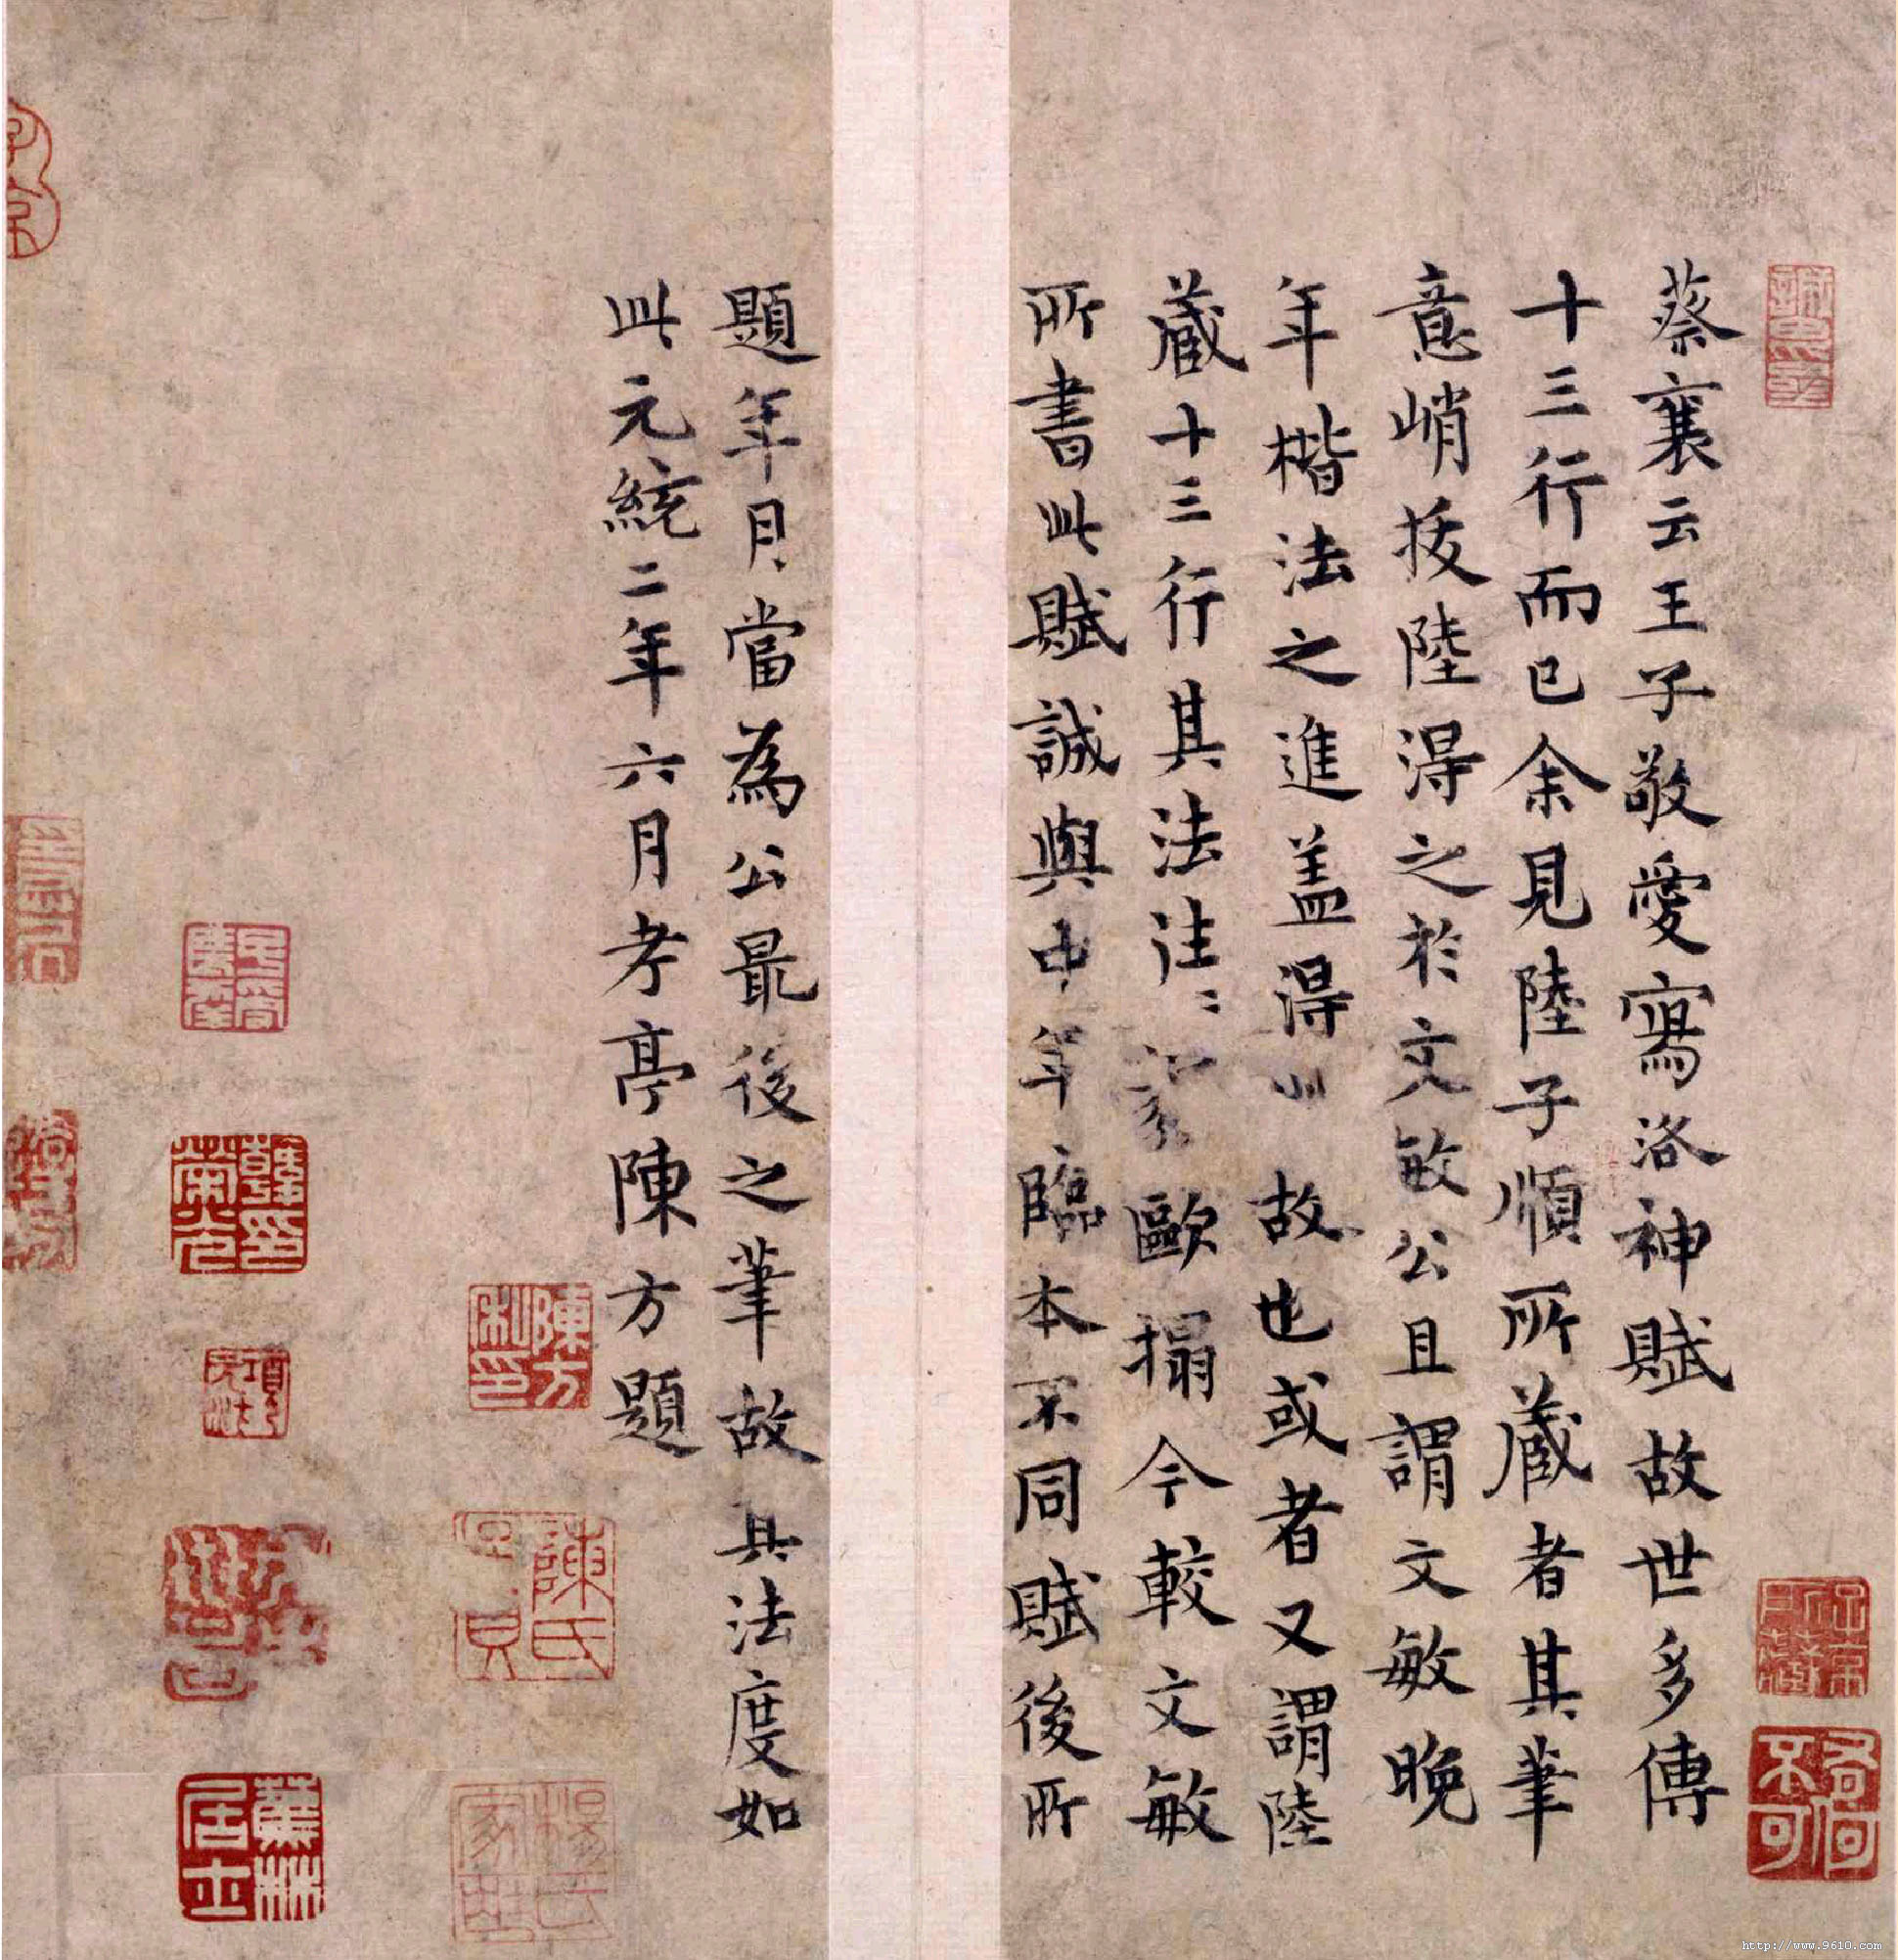 蔡襄云王子敬愛寫洛神賦故世多傳
十三行而已余見陸子順所藏者其筆
意峭拔陸得之於文敏公且謂文敏晚
年楷法之進盖得此故也或者又謂陸
藏十三行其法往〻歐搨今較文敏
所書此賦誠與中年臨本不同賦後所
題年月當為公最後之筆故其法度如
此元統二年六月孝亭陳方題
陳方私印
陳氏子貞
韓印榮光
蕉林居士
http://www.9610.com